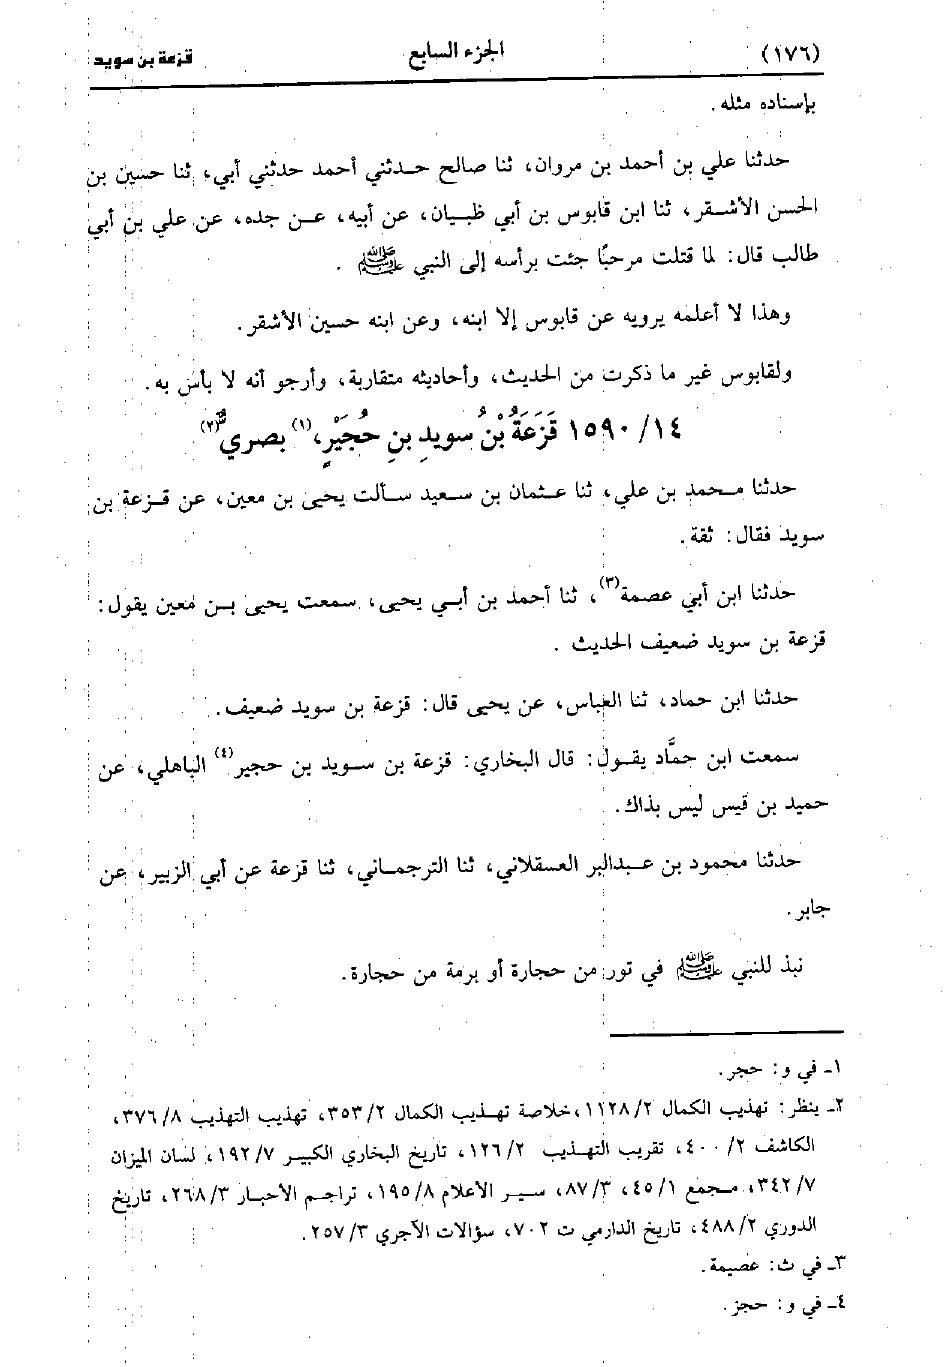 (١٧٦) الجزء السابع قزعة بن سويد
بإسناده مثله .
حدثنا علي بن أحمد بن مروان، ثنا صالح حدثني أحمد حدثني أبي، ثنا حسين بن
الحسن الأشقر، ثنا ابن قابوس بن أبي ظبيان، عن أبيه، عن جده، عن علي بن أبي
طالب قال: لما قتلت مرحبًا جئت برأسه إلى النبي ﷺ .
وهذا لا أعلمه يرويه عن قابوس إلا ابنه، وعن ابنه حسين الأشقر.
ولقابوس غير ما ذكرت من الحديث، وأحاديثه متقاربة، وأرجو أنه لا بأس به.
١٥٩٠/١٤ قَزَعَةُ بْنُ سويدِ بنِ حُجَيْرٍ،(١) بصريٌّ(٢)
حدثنا محمد بن علي، ثنا عثمان بن سعيد سألت يحيى بن معين، عن قزعة بن
سويد فقال: ثقة.
حدثنا ابن أبي عصمة(٣)، ثنا أحمد بن أبي يحيى، سمعت يحيى بن معين يقول:
قزعة بن سويد ضعيف الحديث .
حدثنا ابن حماد، ثنا العباس، عن يحيى قال: قزعة بن سويد ضعيف.
سمعت ابن حمَّاد يقول: قال البخاري: قزعة بن سويد بن حجير(٤) الباهلي، عن
حميد بن قيس ليس بذاك.
حدثنا محمود بن عبدالبر العسقلاني، ثنا الترجماني، ثنا قزعة عن أبي الزبير، عن
جابر.
نبذ للنبي ﷺ في تور من حجارة أو برمة من حجارة.
١ـ في و: حجر.
٢ـ ينظر: تهذيب الكمال ١١٢٨/٢، خلاصة تهذيب الكمال ٣٥٣/٢، تهذيب التهذيب ٣٧٦/٨،
الكاشف ٤٠٠/٢، تقريب التهذيب ١٢٦/٢، تاريخ البخاري الكبير ١٩٢/٧، لسان الميزان
٣٤٢/٧، مجمع ٤٥/١، ٨٧/٣، سير الاعلام ١٩٥/٨، تراجم الأحبار ٢٦٨/٣، تاريخ
الدوري ٤٨٨/٢، تاريخ الدارمي ت ٧٠٢، سؤالات الآجري ٢٥٧/٣.
٣ـ في ث: عصيمة.
٤ـ في و: حجز.